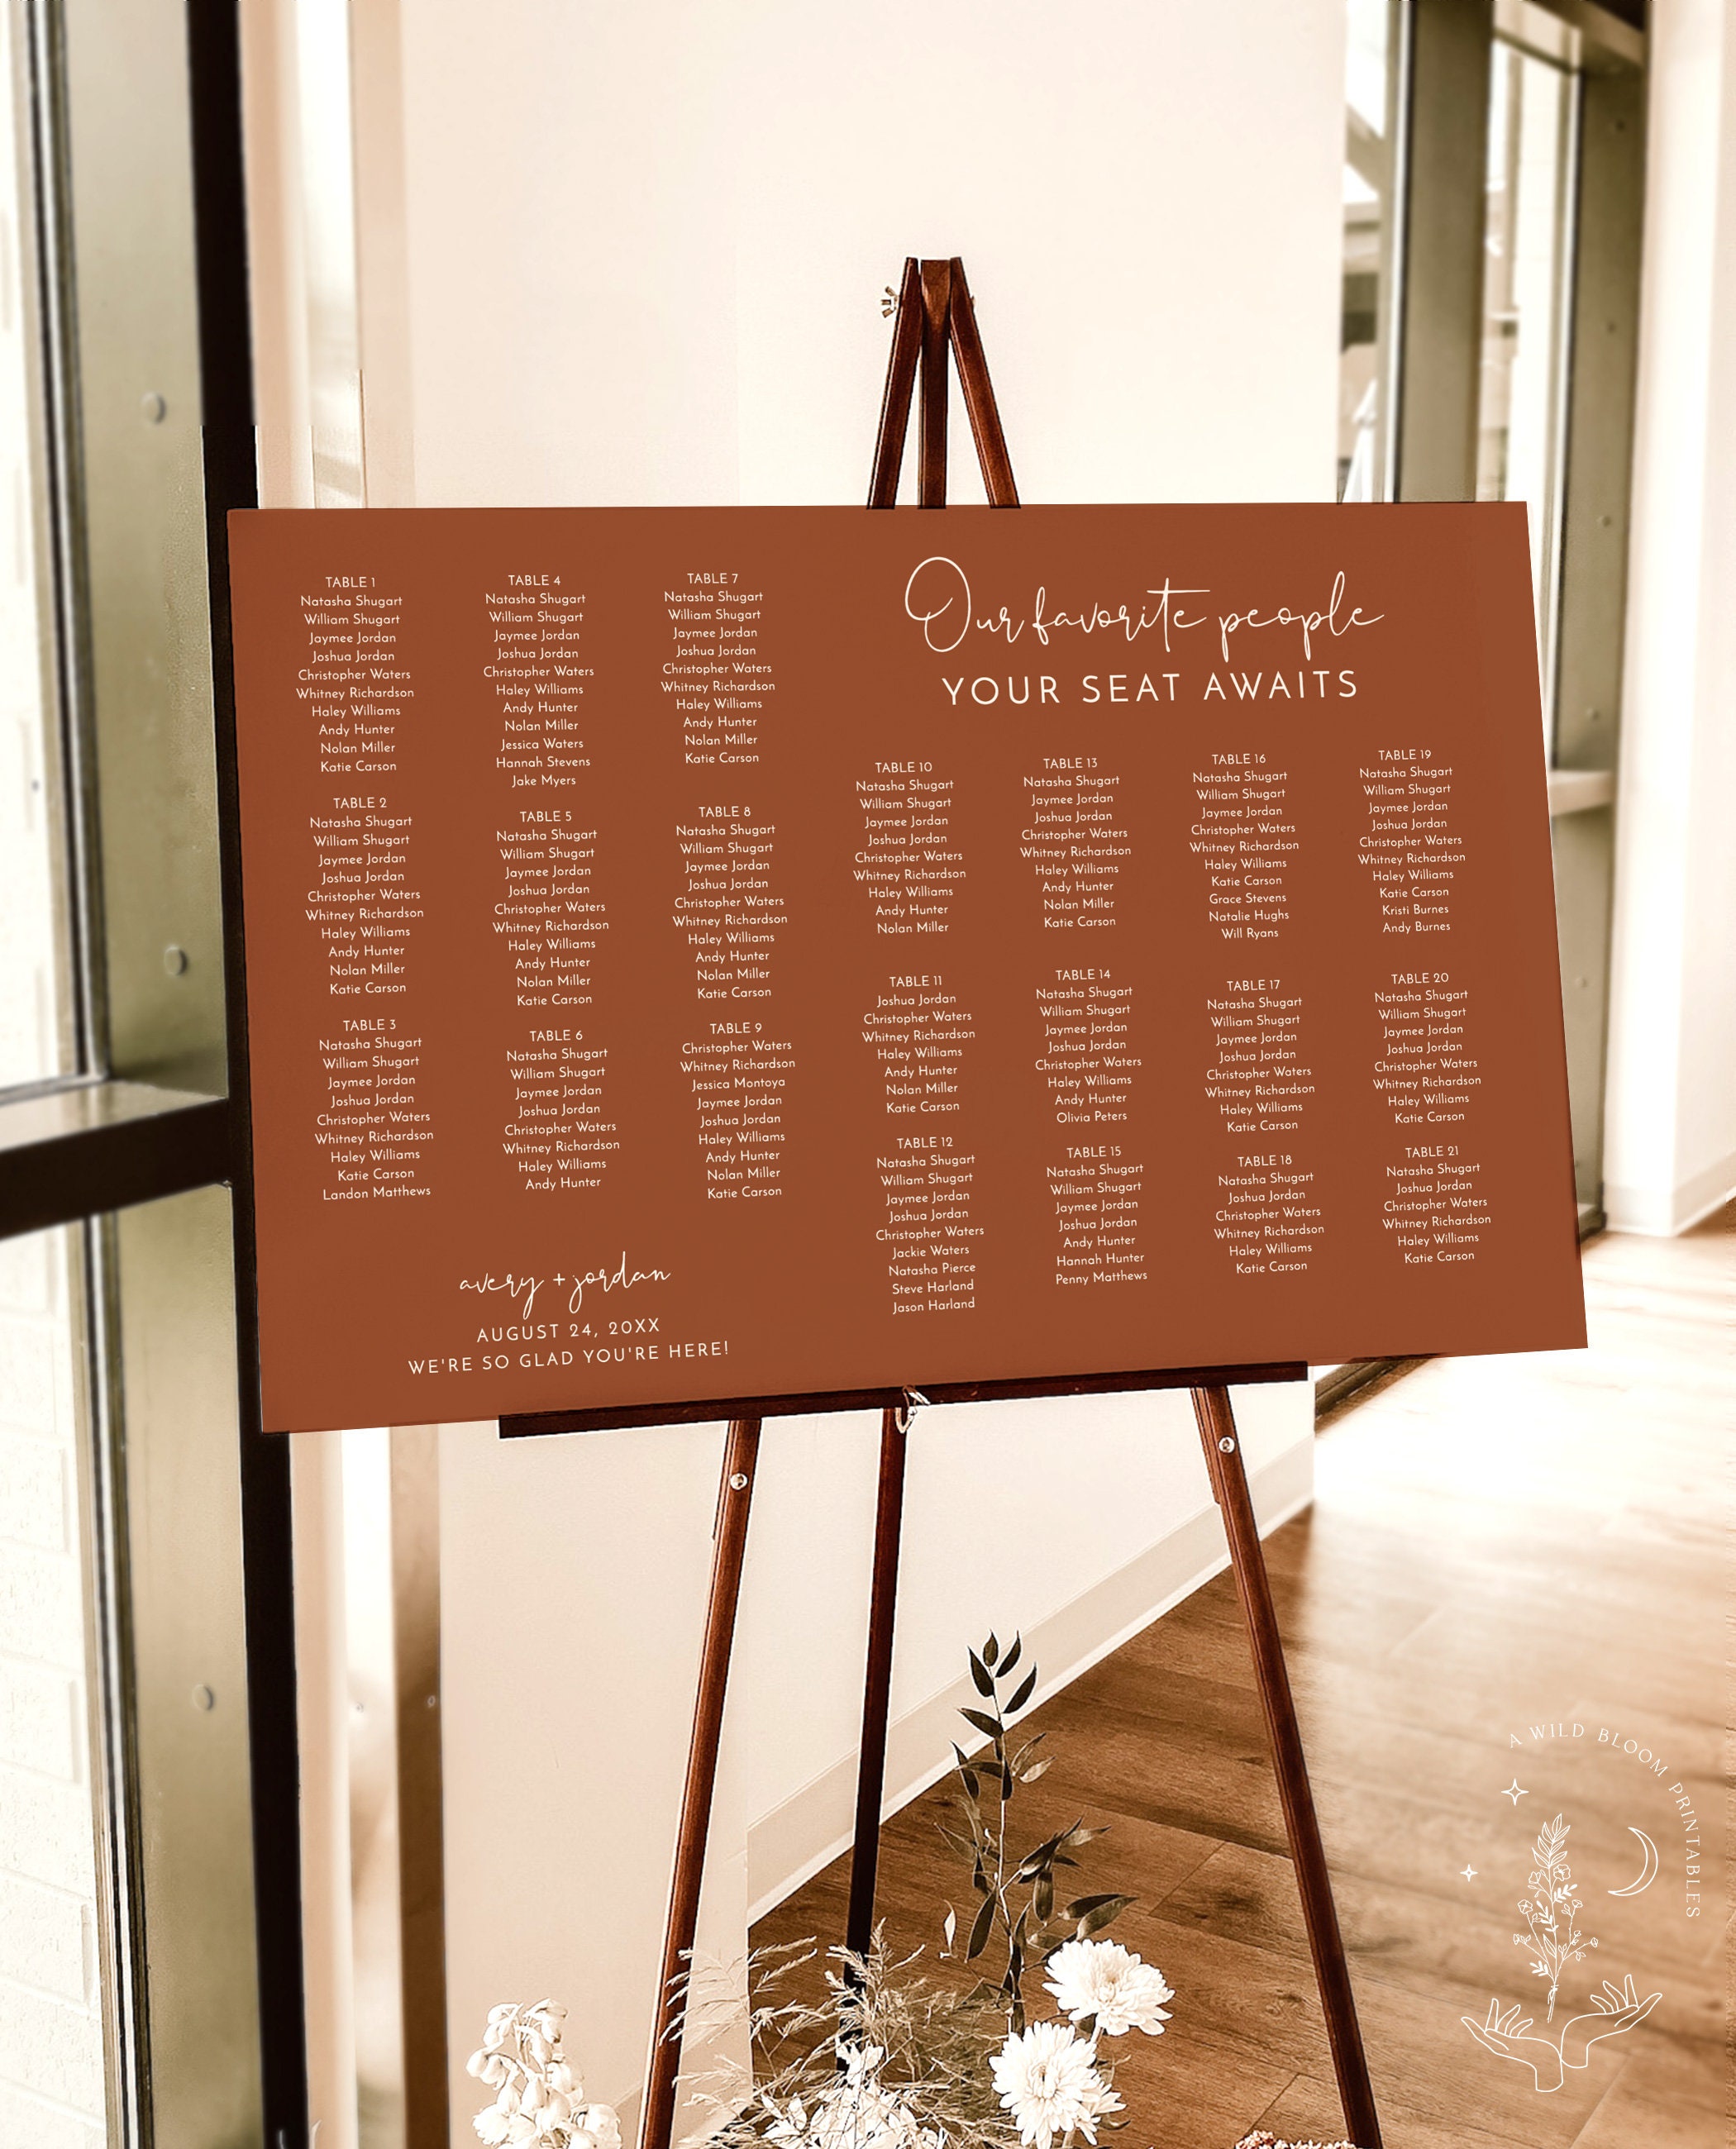 Our favorite people
YOUR SEAT AWAITS
TABLE 1
Natasha Shugart
William Shugart
Jaymee Jordan
Joshua Jordan
Christopher Waters
Whitney Richardson
Haley Williams
Andy Hunter
Nolan Miller
Katie Carson
TABLE 2
Natasha Shugart
William Shugart
Jaymee Jordan
Joshua Jordan
Christopher Waters
Whitney Richardson
Haley Williams
Andy Hunter
Nolan Miller
Katie Carson
TABLE 3
Natasha Shugart
William Shugart
Jaymee Jordan
Joshua Jordan
Christopher Waters
Whitney Richardson
Haley Williams
Katie Carson
Landon Matthews
TABLE 4
Natasha Shugart
William Shugart
Jaymee Jordan
Joshua Jordan
Christopher Waters
Haley Williams
Andy Hunter
Nolan Miller
Jessica Waters
Hannah Stevens
Jake Myers
TABLE 5
Natasha Shugart
William Shugart
Jaymee Jordan
Joshua Jordan
Christopher Waters
Whitney Richardson
Haley Williams
Andy Hunter
Nolan Miller
Katie Carson
TABLE 6
Natasha Shugart
William Shugart
Jaymee Jordan
Joshua Jordan
Christopher Waters
Whitney Richardson
Haley Williams
Andy Hunter
TABLE 7
Natasha Shugart
William Shugart
Jaymee Jordan
Joshua Jordan
Christopher Waters
Whitney Richardson
Haley Williams
Andy Hunter
Nolan Miller
Katie Carson
TABLE 8
Natasha Shugart
William Shugart
Jaymee Jordan
Joshua Jordan
Christopher Waters
Whitney Richardson
Haley Williams
Andy Hunter
Nolan Miller
Katie Carson
TABLE 9
Christopher Waters
Whitney Richardson
Jessica Montoya
Jaymee Jordan
Joshua Jordan
Haley Williams
Andy Hunter
Nolan Miller
Katie Carson
TABLE 10
Natasha Shugart
William Shugart
Jaymee Jordan
Joshua Jordan
Christopher Waters
Whitney Richardson
Haley Williams
Andy Hunter
Nolan Miller
TABLE 11
Joshua Jordan
Christopher Waters
Whitney Richardson
Haley Williams
Andy Hunter
Nolan Miller
Katie Carson
TABLE 12
Natasha Shugart
William Shugart
Jaymee Jordan
Joshua Jordan
Christopher Waters
Jackie Waters
Natasha Pierce
Steve Harland
Jason Harland
TABLE 13
Natasha Shugart
Jaymee Jordan
Joshua Jordan
Christopher Waters
Whitney Richardson
Haley Williams
Andy Hunter
Nolan Miller
Katie Carson
TABLE 14
Natasha Shugart
William Shugart
Jaymee Jordan
Joshua Jordan
Christopher Waters
Haley Williams
Andy Hunter
Olivia Peters
TABLE 15
Natasha Shugart
William Shugart
Jaymee Jordan
Joshua Jordan
Andy Hunter
Hannah Hunter
Penny Matthews
TABLE 16
Natasha Shugart
William Shugart
Jaymee Jordan
Christopher Waters
Whitney Richardson
Haley Williams
Katie Carson
Grace Stevens
Natalie Hughs
Will Ryans
TABLE 17
Natasha Shugart
William Shugart
Jaymee Jordan
Joshua Jordan
Christopher Waters
Whitney Richardson
Haley Williams
Katie Carson
TABLE 18
Natasha Shugart
Joshua Jordan
Christopher Waters
Whitney Richardson
Haley Williams
Katie Carson
TABLE 19
Natasha Shugart
William Shugart
Jaymee Jordan
Joshua Jordan
Christopher Waters
Whitney Richardson
Haley Williams
Katie Carson
Kristi Burnes
Andy Burnes
TABLE 20
Natasha Shugart
William Shugart
Jaymee Jordan
Joshua Jordan
Christopher Waters
Whitney Richardson
Haley Williams
Katie Carson
TABLE 21
Natasha Shugart
Joshua Jordan
Christopher Waters
Whitney Richardson
Haley Williams
Katie Carson
avery + jordan
AUGUST 24, 20XX
WE'RE SO GLAD YOU'RE HERE!
A WILD BLOOM PRINTABLES